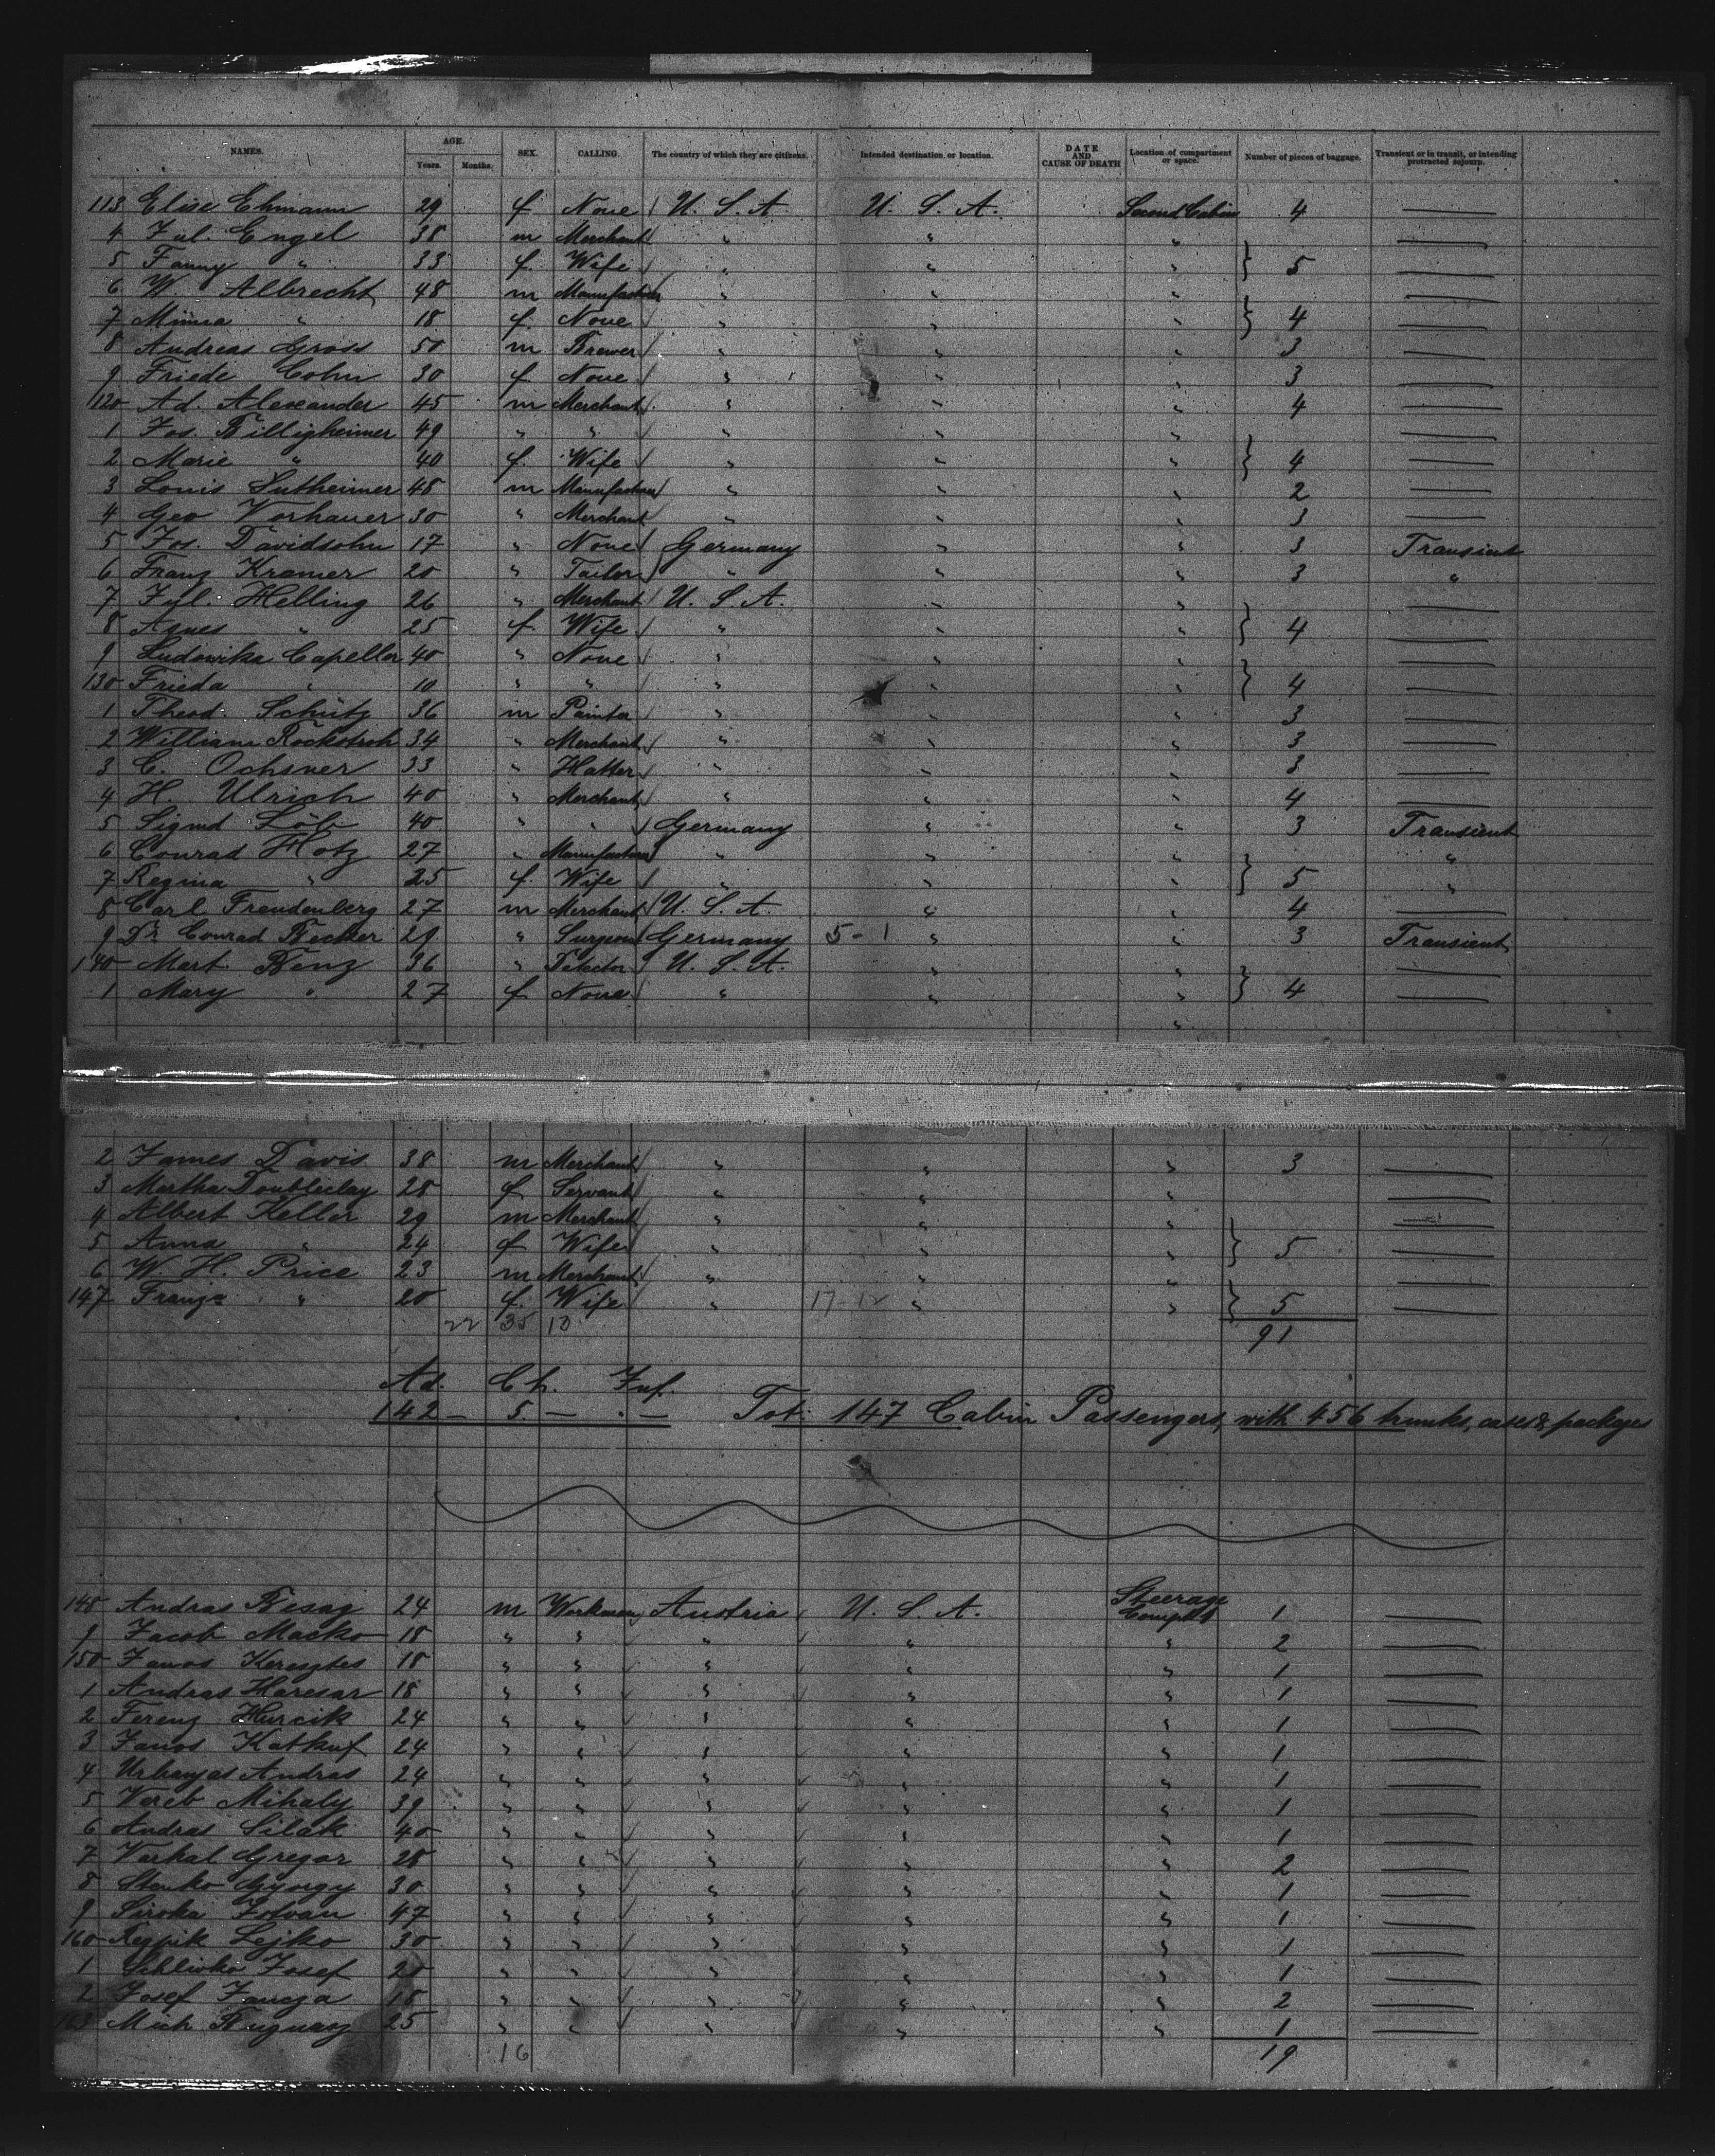 NAMES. AGE. Years. Months. SEX. CALLING. The country of which they are citizens. Intended destination or location. DATE AND CAUSE OF DEATH Location of compartment or space. Number of pieces of baggage. Transient or in transit, or intending protracted sojourn.
113 Elise Ehmann 29 f None U. S. A. U. S. A. Second Cabin 4 —
4 Jul. Engel 38 m Merchant " " " —
5 Fanny " 33 f. Wife " " " } 5 —
6 W. Albrecht 48 m Manufacturer " " " —
7 Minna " 18 f. None " " " } 4 —
8 Andreas Gross 50 m Brewer " " " 3 —
9 Friede Cohn 30 f None " " " 3 —
120 Ad. Alexander 45 m Merchant " " " 4 —
1 Jos. Billigheimer 49 " " " " " —
2 Marie " 40 f. Wife " " " } 4 —
3 Louis Sutheimer 48 m Manufacturer " " " 2 —
4 Geo Vorhauer 30 " Merchant " " " 3 —
5 Jos. Davidsohn 17 " None Germany " " 3 Transient
6 Franz Kramer 20 " Tailor " " " 3 "
7 Jul. Helling 26 " Merchant U. S. A. " " —
8 Agnes " 25 f. Wife " " " } 4 —
9 Ludowika Capeller 40 " None " " " —
130 Frieda " 10 " " " " " } 4 —
1 Theod. Schütz 36 m Painter " " " 3 —
2 William Rockstroh 34 " Merchant " " " 3 —
3 C. Ochsner 33 " Hatter " " " 3 —
4 H. Ulrich 40 " Merchant " " " 4 —
5 Sigmd Löb 40 " " Germany " " 3 Transient
6 Conrad Hotz 27 " Manufacturer " " " "
7 Regina " 25 f. Wife " " " } 5 "
8 Carl Freudenberg 27 m Merchant U. S. A. " " 4 —
9 Dr. Conrad Becker 29 " Surgeon Germany 5-1 " " 3 Transient
140 Mart. Benz 36 " U. S. A. " " —
1 Mary " 27 f None " " " } 4 —
"
2 James Davis 38 m Merchant " " " 3 —
3 Martha Doubleday 28 f Servant " " " —
4 Albert Keller 29 m Merchant " " " —
5 Anna " 24 f Wife " " " } 5 —
6 W. H. Price 23 m Merchant " " " —
147 Franza " 20 f. Wife " 17-12 " " } 5 —
22 35 10 91
Ad. Ch. Inf.
142 — 5 — . — Tot: 147 Cabin Passengers, with 456 trunks, cases & packages
148 Andras Besag 24 m Workman Austria U. S. A. Steerage Compt 1 —
9 Jacob Macko 18 " " " " " 2 —
150 Janos Keresztes 18 " " " " " 1 —
1 Andras Haresar 18 " " " " " 1 —
2 Ferenz Hurcik 24 " " " " " 1 —
3 Janos Katkuf 24 " " " " " 1 —
4 Urbanjas Andras 24 " " " " " 1 —
5 Vereb Mihaly 39 " " " " " 1 —
6 Andras Silak 40 " " " " " 1 —
7 Varhal Gregor 28 " " " " " 2 —
8 Stenko György 30 " " " " " 1 —
9 Siroka Istvan 47 " " " " " 1 —
160 Lejko 30 " " " " " 1 —
1 Josef 20 " " " " " 1 —
2 Josef 18 " " " " " 2 —
163 Mich 25 " " " " " 1 —
16 19